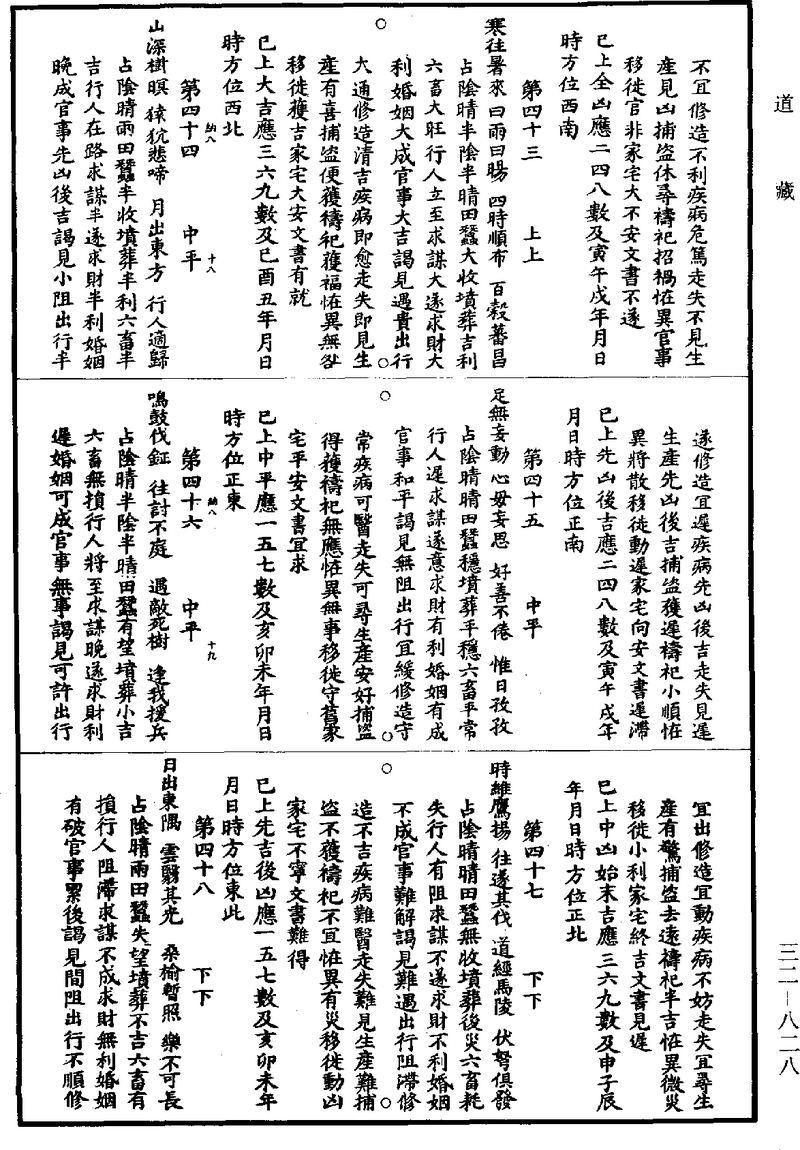 道藏
不宜修造不利疾病危篤走失不見生
產見凶捕盜休尋禱祀招禍恠異官事
移徙官非家宅大不安文書不遂
已上全凶應二四八數及寅午戌年月日
時方位西南
第四十三 上上
寒往暑來 曰雨曰暘 四時順布 百穀蕃昌
占陰晴半陰半晴田蠶大收墳葬吉利
六畜大旺行人立至求謀大遂求財大
利婚姻大成官事大吉謁見遇貴出行
大通修造清吉疾病即愈走失即見生
產有喜捕盜便獲禱祀獲福恠異無咎
移徙獲吉家宅大安文書有就
已上大吉應三六九數及巳酉丑年月日
時方位西北
第四十四 納八 中平 十八
山深樹暝 猿狖悲啼 月出東方 行人適歸
占陰晴兩田蠶半收墳葬半利六畜半
吉行人在路求謀半遂求財半利婚姻
晚成官事先凶後吉謁見小阻出行半
遂修造宜遲疾病先凶後吉走失見遲
生產先凶後吉捕盜獲遲禱祀小順恠
異將散移徙動遲家宅向安文書遲滯
已上先凶後吉應二四八數及寅午戌年
月日時方位正南
第四十五 中平
足無妄動 心毋妄思 好善不倦 惟日孜孜
占陰晴晴田蠶穩墳葬平穩六畜平常
行人遲求謀遂意求財有利婚姻有成
官事和平謁見無阻出行宜緩修造守
常疾病可醫走失可尋生產安好捕盜
得獲禱祀無應恠異無事移徙守舊家
宅平安文書宜求
已上中平應一五七數及亥卯未年月日
時方位正東
第四十六 納八 中平 十九
鳴鼓伐鉦 往討不庭 遇敵死樹 逢我援兵
占陰晴半陰半晴田蠶有望墳葬小吉
六畜無損行人將至求謀晚遂求財利
遲婚姻可成官事無事謁見可許出行
宜出修造宜動疾病不妨走失宜尋生
產有驚捕盜去遠禱祀半吉恠異微災
移徙小利家宅終吉文書見遲
已上中凶始末吉應三六九數及申子辰
年月日時方位正北
第四十七 下下
時維鷹揚 往遂其伐 道經馬陵 伏弩俱發
占陰晴晴田蠶無收墳葬後災六畜耗
失行人有阻求謀不遂求財不利婚姻
不成官事難解謁見難遇出行阻滯修
造不吉疾病難醫走失難見生產難捕
盜不獲禱祀不宜恠異有災移徙動凶
家宅不寧文書難得
已上先吉後凶應一五七數及亥卯未年
月日時方位東北
第四十八 下下
日出東隅 雲翳其光 桑榆暫照 樂不可長
占陰晴雨田蠶失望墳葬不吉六畜有
損行人阻滯求謀不成求財無利婚姻
有破官事累後謁見間阻出行不順修
三二—八二八